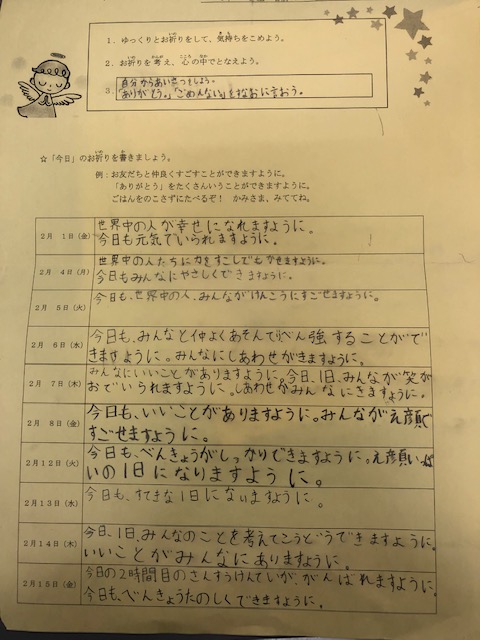 1．ゆっくりとお祈りをして、気持ちをこめよう。
2．お祈りを考え、心の中でとなえよう。
3．自分からあいさつをしよう。
「ありがとう。」「ごめんなさい」をすなおに言おう。
☆「今日」のお祈りを書きましょう。
例：お友だちと仲良くすごすことができますように。
「ありがとう」をたくさんいうことができますように。
ごはんをのこさずにたべるぞ！　かみさま、みててね。
2月　1日（金）
世界中の人が幸せになれますように。
今日も元気でいられますように。
2月　4日（月）
世界中の人たちに力をすこしでもかせますように。
今日もみんなにやさしくできますように。
2月　5日（火）
今日も、世界中の人、みんながけんこうにすごせますように。
2月　6日（水）
今日も、みんなと仲よくあそんでべん強することがで
きますように。みんなにしあわせがきますように。
2月　7日（木）
みんなにいいことがありますように。今日、1日、みんなが笑が
おでいられますように。しあわせがみんなにきますように。
2月　8日（金）
今日も、いいことがありますように。みんなが え顔で
すごせますように。
2月12日（火）
今日も、べんきょうがしっかりできますように。え顔いっぱ
いの1日になりますように。
2月13日（水）
今日も、すてきな1日になりますように。
2月14日（木）
今日、1日、みんなのことを考えてこうどうできますように。
いいことがみんなにありますように。
2月15日（金）
今日の2時間目のさんすうけんていが、がんばれますように。
今日も、べんきょうたのしくできますように。